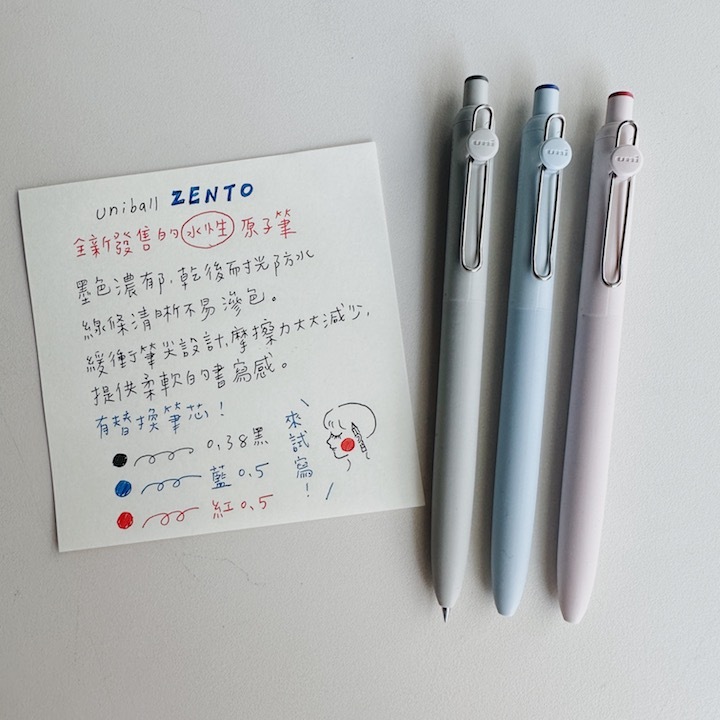 uniball ZENTO
全新發售的水性原子筆
墨色濃郁,乾後耐光防水
線條清晰不易滲色。
緩衝筆尖設計,摩擦力大大減少,
提供柔軟的書寫感。
有替換筆芯!
0.38黑
藍0.5
紅0.5
來試寫!
uni
uni
uni